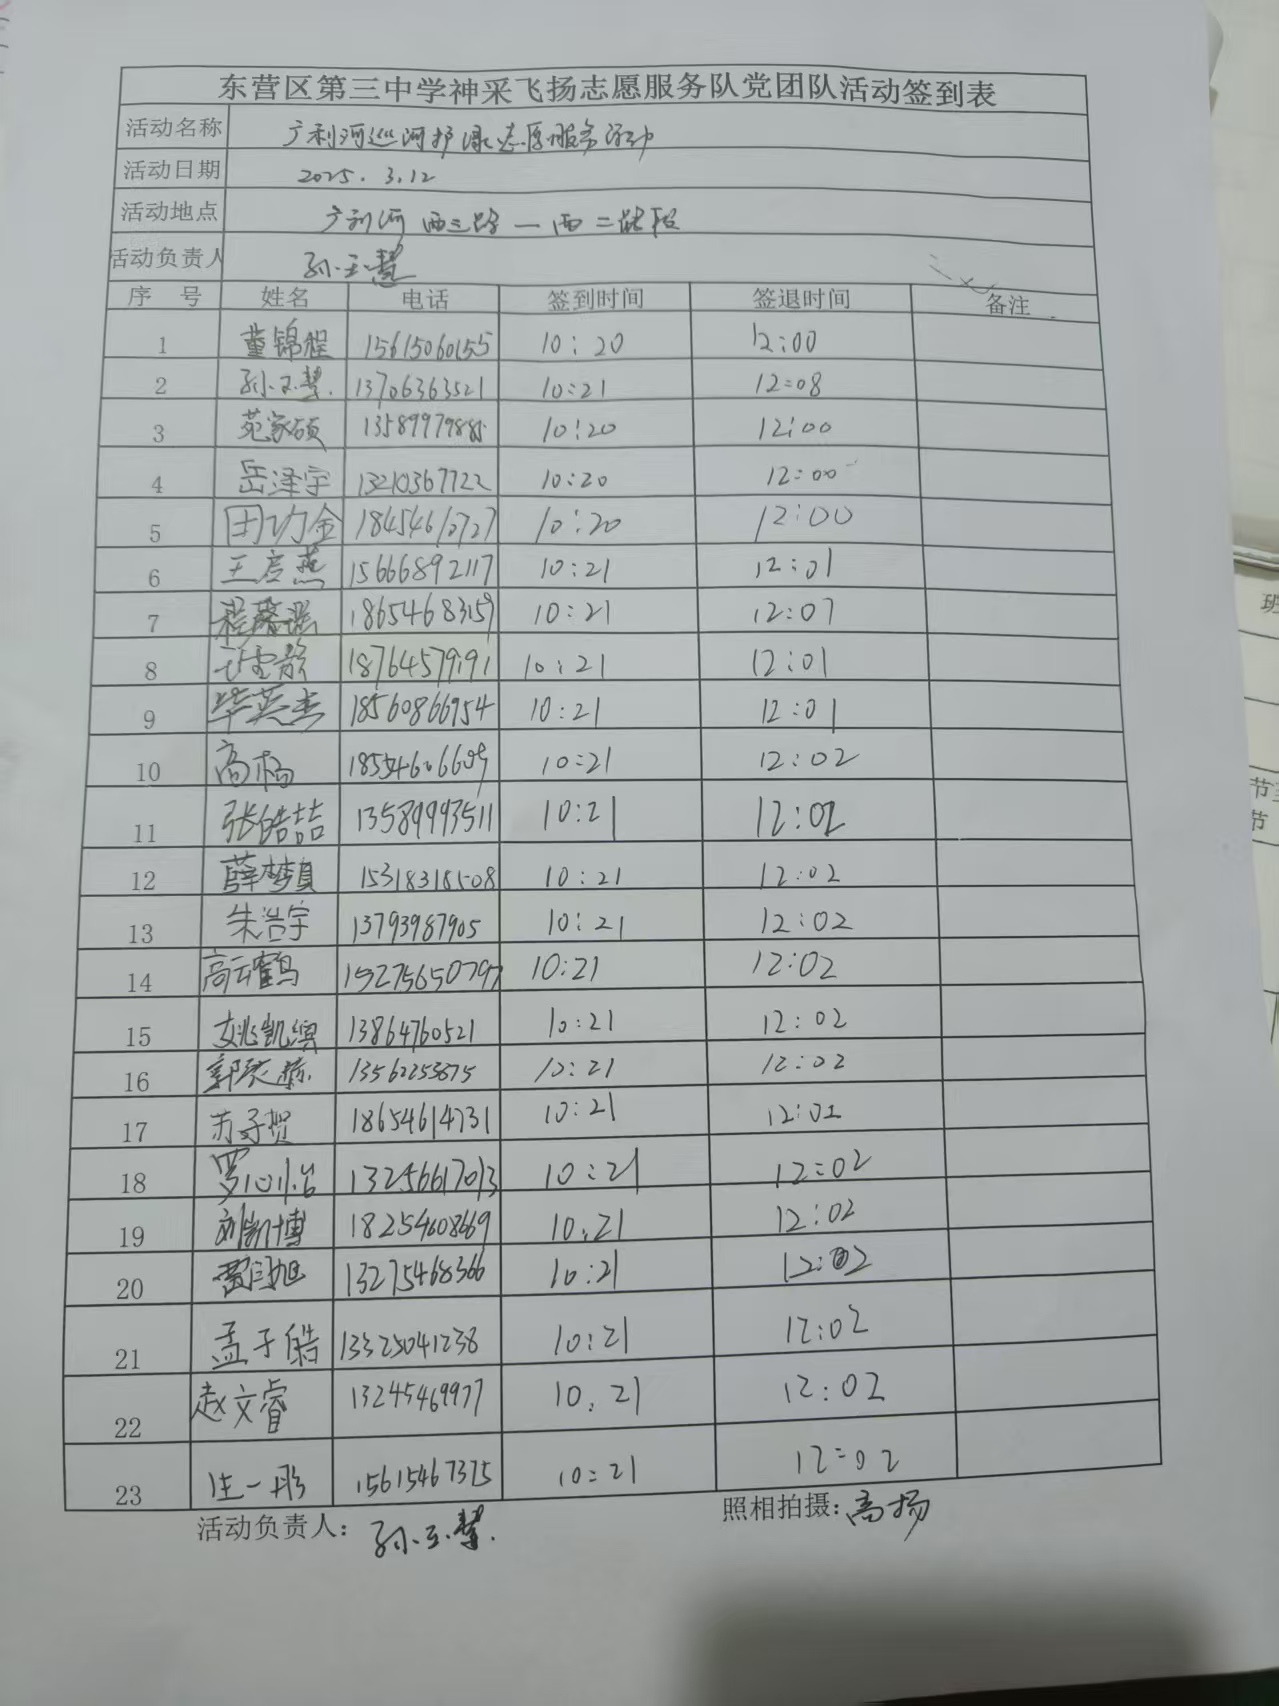 东营区第三中学神采飞扬志愿服务队党团队活动签到表
活动名称 广利河巡河护绿志愿服务活动
活动日期 2025.3.12
活动地点 广利河西三路—西二路段
活动负责人 孙玉慧
序 号 姓名 电话 签到时间 签退时间 备注
1 董锦程 15615060155 10:20 12:00
2 孙玉慧 13706363521 10:21 12:08
3 苑家硕 13589979885 10:20 12:00
4 岳泽宇 13210367722 10:20 12:00
5 田功金 18454610727 10:20 12:00
6 王彦燕 15666892117 10:21 12:01
7 程馨瑶 18654683159 10:21 12:07
8 18764579191 10:21 12:01
9 毕英杰 18560866954 10:21 12:01
10 高杨 10:21 12:02
11 张皓喆 13589993511 10:21 12:02
12 薛梦真 15318318508 10:21 12:02
13 朱浩宇 13793987905 10:21 12:02
14 高云鹤 15275650797 10:21 12:02
15 姚凯缤 13864760521 10:21 12:02
16 13562253875 10:21 12:02
17 苏子贺 18654614731 10:21 12:02
18 罗心怡 13256617013 10:21 12:02
19 刘凯博 18254608669 10:21 12:02
20 贾闫旭 13275468366 10:21 12:02
21 孟子皓 13325041238 10:21 12:02
22 赵文睿 13245469977 10:21 12:02
23 庄一彤 15615467375 10:21 12:02
活动负责人: 孙玉慧 照相拍摄: 高扬
班
节
节